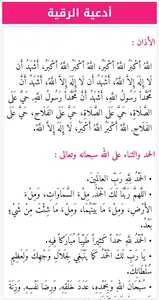 أدعية الرقية
الأذان :
اللَّهُ أَكْبَرُ، اللَّهُ أَكْبَرُ، اللَّهُ أَكْبَرُ، اللَّهُ أَكْبَرُ، أَشْهَدُ أَنْ
لَا إِلَهَ إِلَّا اللَّهُ، أَشْهَدُ أَنْ لَا إِلَهَ إِلَّا اللَّهُ، أَشْهَدُ أَنَّ
مُحَمَّدًا رَسُولُ اللَّهِ، أَشْهَدُ أَنَّ مُحَمَّدًا رَسُولُ اللَّهِ، حَيَّ عَلَى
الصَّلَاةِ، حَيَّ عَلَى الصَّلَاةِ، حَيَّ عَلَى الفَلَاحِ، حَيَّ عَلَى
الفَلَاحِ، اللَّهُ أَكْبَرُ، اللَّهُ أَكْبَرُ، لَا إِلَهَ إِلَّا اللَّهُ.
الحمد والثناء على الله سبحانه وتعالى :
- الحَمْدُ لِلَّهِ رَبِّ العَالَمِينَ.
- اللَّهُمَّ رَبَّنَا لَكَ الحَمْدُ، مِلْءَ السَّمَاوَاتِ، وَمِلْءَ
الأَرْضِ، وَمِلْءَ مَا بَيْنَهُمَا، وَمِلْءَ مَا شِئْتَ مِنْ شَيْءٍ
بَعْدُ.
- الحَمْدُ لِلَّهِ حَمْدًا كَثِيرًا طَيِّبًا مُبَارَكًا فِيهِ.
- يَا رَبِّ لَكَ الحَمْدُ كَمَا يَنْبَغِي لِجَلَالِ وَجْهِكَ وَلِعَظِيمِ
سُلْطَانِكَ.
- سُبْحَانَ اللَّهِ وَبِحَمْدِهِ، عَدَدَ خَلْقِهِ، وَرِضَا نَفْسِهِ، وَزِنَةَ